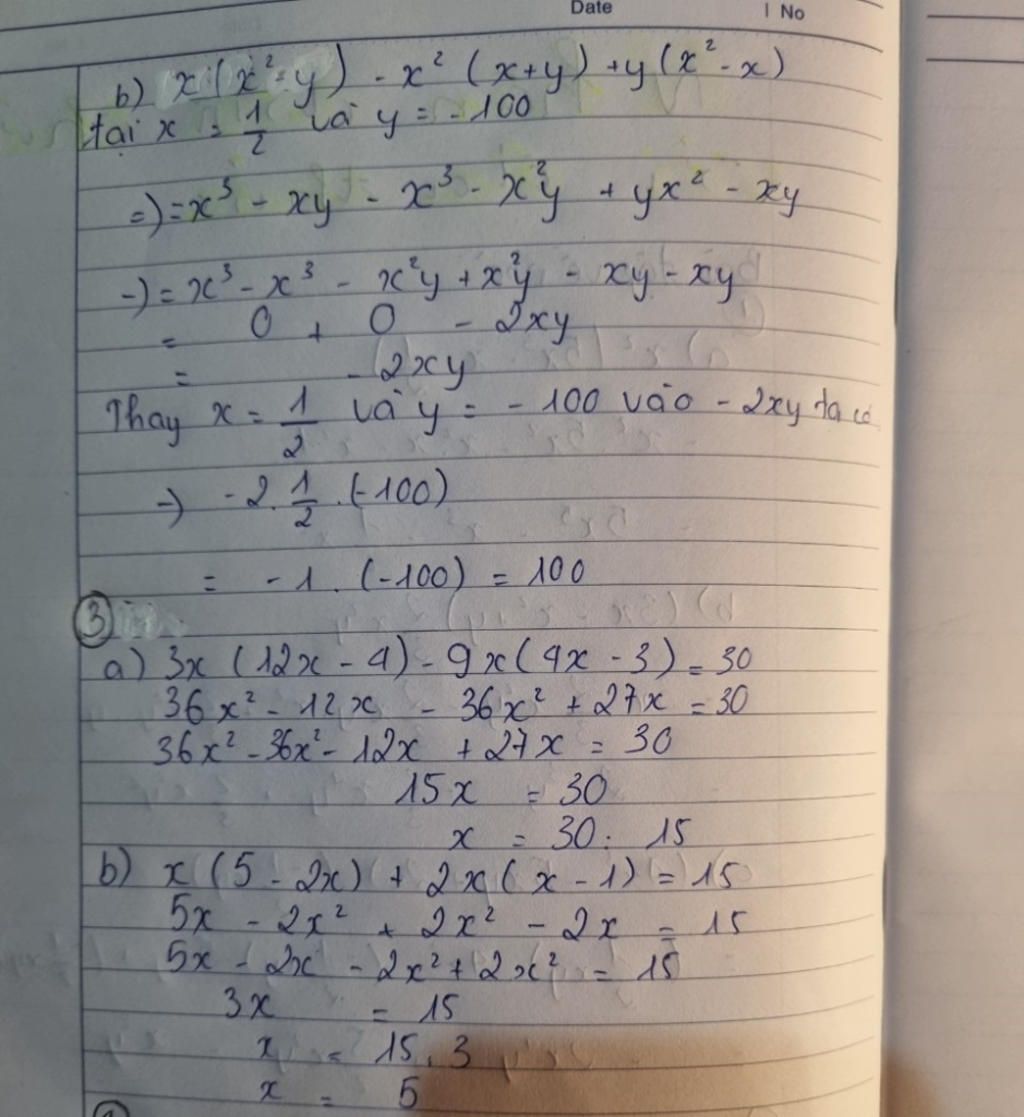 Date | No
b) x(x² - y) - x² (x+y) + y(x² - x)
tại x = 1/2 và y = -100
=) = x³ - xy - x³ - x²y + yx² - xy
-) = x³ - x³ - x²y + x²y - xy - xy
= 0 + 0 - 2xy
= - 2xy
Thay x = 1/2 và y = - 100 vào - 2xy ta có
-) -2 . 1/2 . (-100)
= - 1 . (-100) = 100
③
a) 3x (12x - 4) - 9x (4x - 3) = 30
36x² - 12x - 36x² + 27x = 30
36x² - 36x² - 12x + 27x = 30
15x = 30
x = 30 : 15
b) x (5 - 2x) + 2x (x - 1) = 15
5x - 2x² + 2x² - 2x = 15
5x - 2x - 2x² + 2x² = 15
3x = 15
x = 15 : 3
x = 5